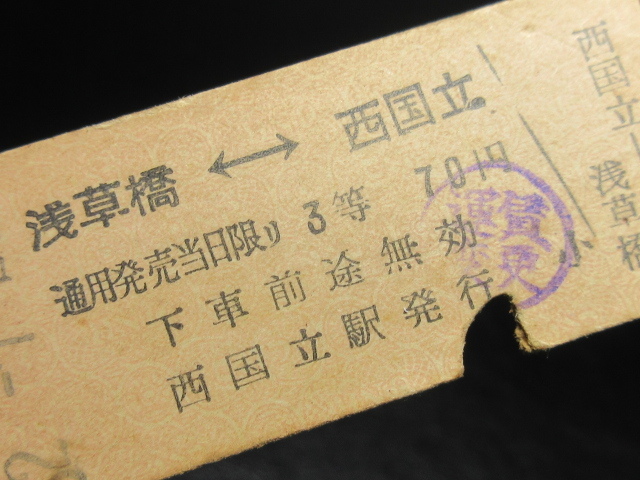 浅草橋 ↔ 西国立
通用発売当日限り 3等 70円
下車前途無効
西国立駅発行
運賃変
小
西国立―浅草橋